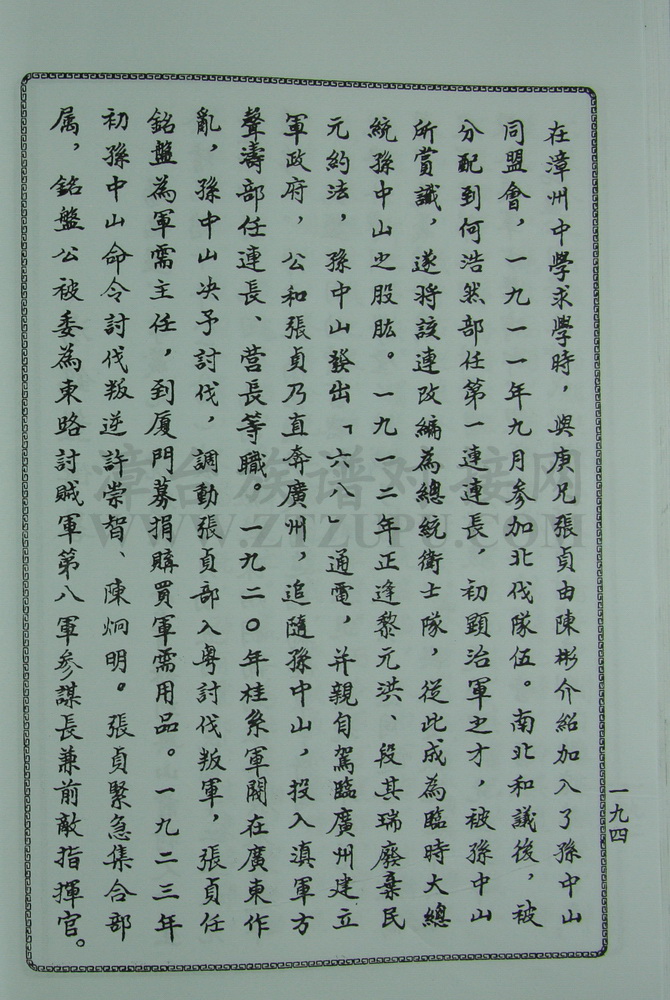 在漳州中學求學時，與庚兄張貞由陳彬介紹加入了孫中山
同盟會，一九一一年九月參加北伐隊伍。南北和議後，被
分配到何浩然部任第一連連長，初顯治軍之才，被孫中山
所賞識，遂將該連改編為總統衛士隊，從此成為臨時大總
統孫中山之股肱。一九一二年正逢黎元洪、段其瑞廢棄民
元約法，孫中山發出「六八」通電，并親自駕臨廣州建立
軍政府，公和張貞乃直奔廣州，追隨孫中山，投入滇軍方
聲濤部任連長、营長等職。一九二〇年桂系軍閥在廣東作
亂，孫中山决予討伐，調動張貞部入粵討伐叛軍，張貞任
銘盤為軍需主任，到厦門募捐購買軍需用品。一九二三年
初孫中山命令討伐叛逆許崇智、陳炯明。張貞緊急集合部
属，銘盤公被委為東路討賊軍第八軍参謀長兼前敵指揮官。
一九四
漳台族谱对接网
WWW.ZTZUPU.COM